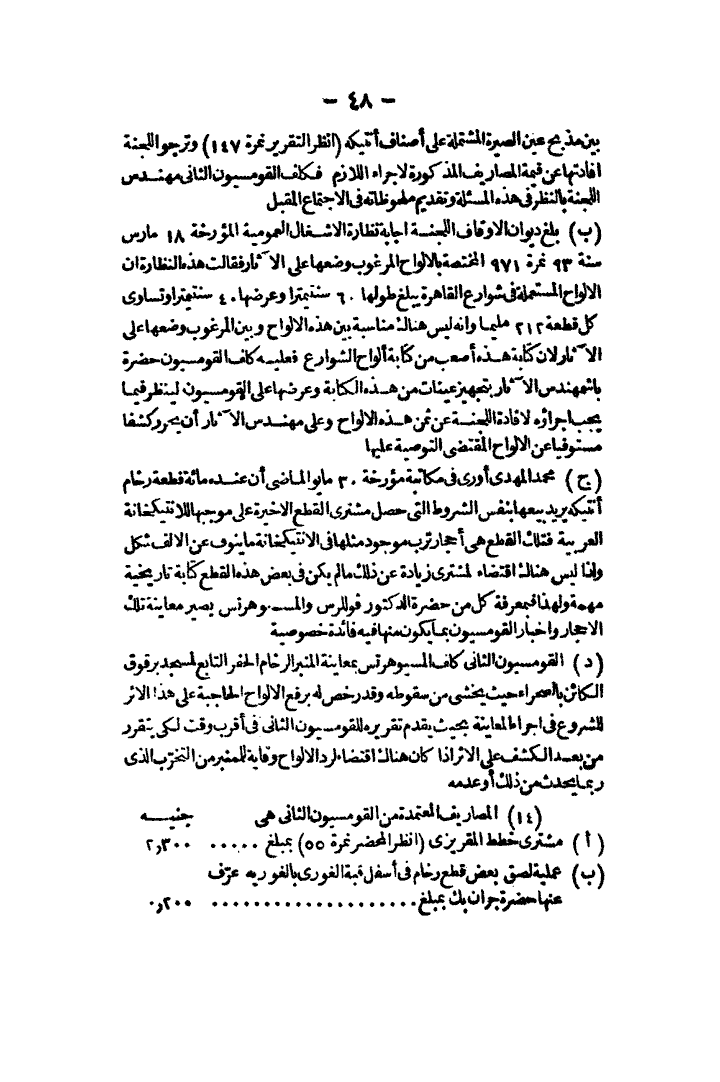 - ٤٨ -
بين مذبح عين الصيرة المشتملة على أصناف أنتيكه (انظر التقرير نمرة ١٤٧) وترجو اللجنة
افادتها عن قيمة المصاريف المذكورة لاجراء اللازم فكلف القومسيون الثانى مهندس
اللجنة بالنظر فى هذه المسئلة وتقديم ملحوظاته فى الاجتماع المقبل
(ب) بلغ ديوان الاوقاف اللجنة اجابة نظارة الاشغال العمومية المؤرخة ١٨ مارس
سنة ٩٣ نمرة ٩٧١ المختصة بالالواح المرغوب وضعها على الآثار فقالت هذه النظارة ان
الالواح المستعملة فى شوارع القاهرة يبلغ طولها ٦٠ سنتيمترا وعرضها ٤٠ سنتيمترا وتساوى
كل قطعة ٢١٢ مليما وانه ليس هنالك مناسبة بين هذه الالواح وبين المرغوب وضعها على
الآثار لان كتابة هذه أصعب من كتابة ألواح الشوارع فعليه كلف القومسيون حضرة
باشمهندس الآثار بتجهيز عينات من هذه الكتابة وعرضها على القومسيون لينظر فيما
يجب اجراؤه لافادة اللجنة عن ثمن هذه الالواح وعلى مهندس الآثار أن يحرر كشفا
مستوفيا عن الالواح المقتضى التوصية عليها
(ج) محمد المهدى أورى فى مكاتبة مؤرخة ٣٠ مايو الماضى أن عنده مائة قطعة رخام
أنتيكه يريد بيعها بنفس الشروط التى حصل مشترى القطع الاخيرة على موجبها للانتيكخانة
العربية فتلك القطع هى أحجار ترب موجود مثلها فى الانتيكخانة ماينوف عن الالف شكل
واذا ليس هنالك اقتضاء لمشترى زيادة عن ذلك مالم يكن فى بعض هذه القطع كتابة تاريخية
مهمة ولهذا فبمعرفة كل من حضرة الدكتور فوللرس والمسيو هرتس يصير معاينة تلك
الاحجار واخبار القومسيون بما يكون منها فيه فائدة خصوصية
(د) القومسيون الثانى كلف المسيو هرتس بمعاينة المنبر الرخام الحفر التابع لمسجد برقوق
الكائن بالصحراء حيث يخشى من سقوطه وقد رخص له برفع الالواح الحاجبة على هذا الاثر
للشروع فى اجراء المعاينة بحيث يقدم تقريره للقومسيون الثانى فى أقرب وقت لكى يتقرر
من بعد الكشف على الاثر اذا كان هنالك اقتضاء لرد الالواح وقاية للمنبر من التخرب الذى
ربما يحدث من ذلك أو عدمه
(١٤) المصاريف المعتمدة من القومسيون الثانى هى جنيه
(أ) مشترى خطط المقريزى (انظر المحضر نمرة ٥٥) بمبلغ ..... ٢,٣٠٠
(ب) عملية لصق بعض قطع رخام فى أسفل قبة الغورى بالغوريه عرّف
عنها حضرة جران بك بمبلغ .................... ٠,٢٠٠